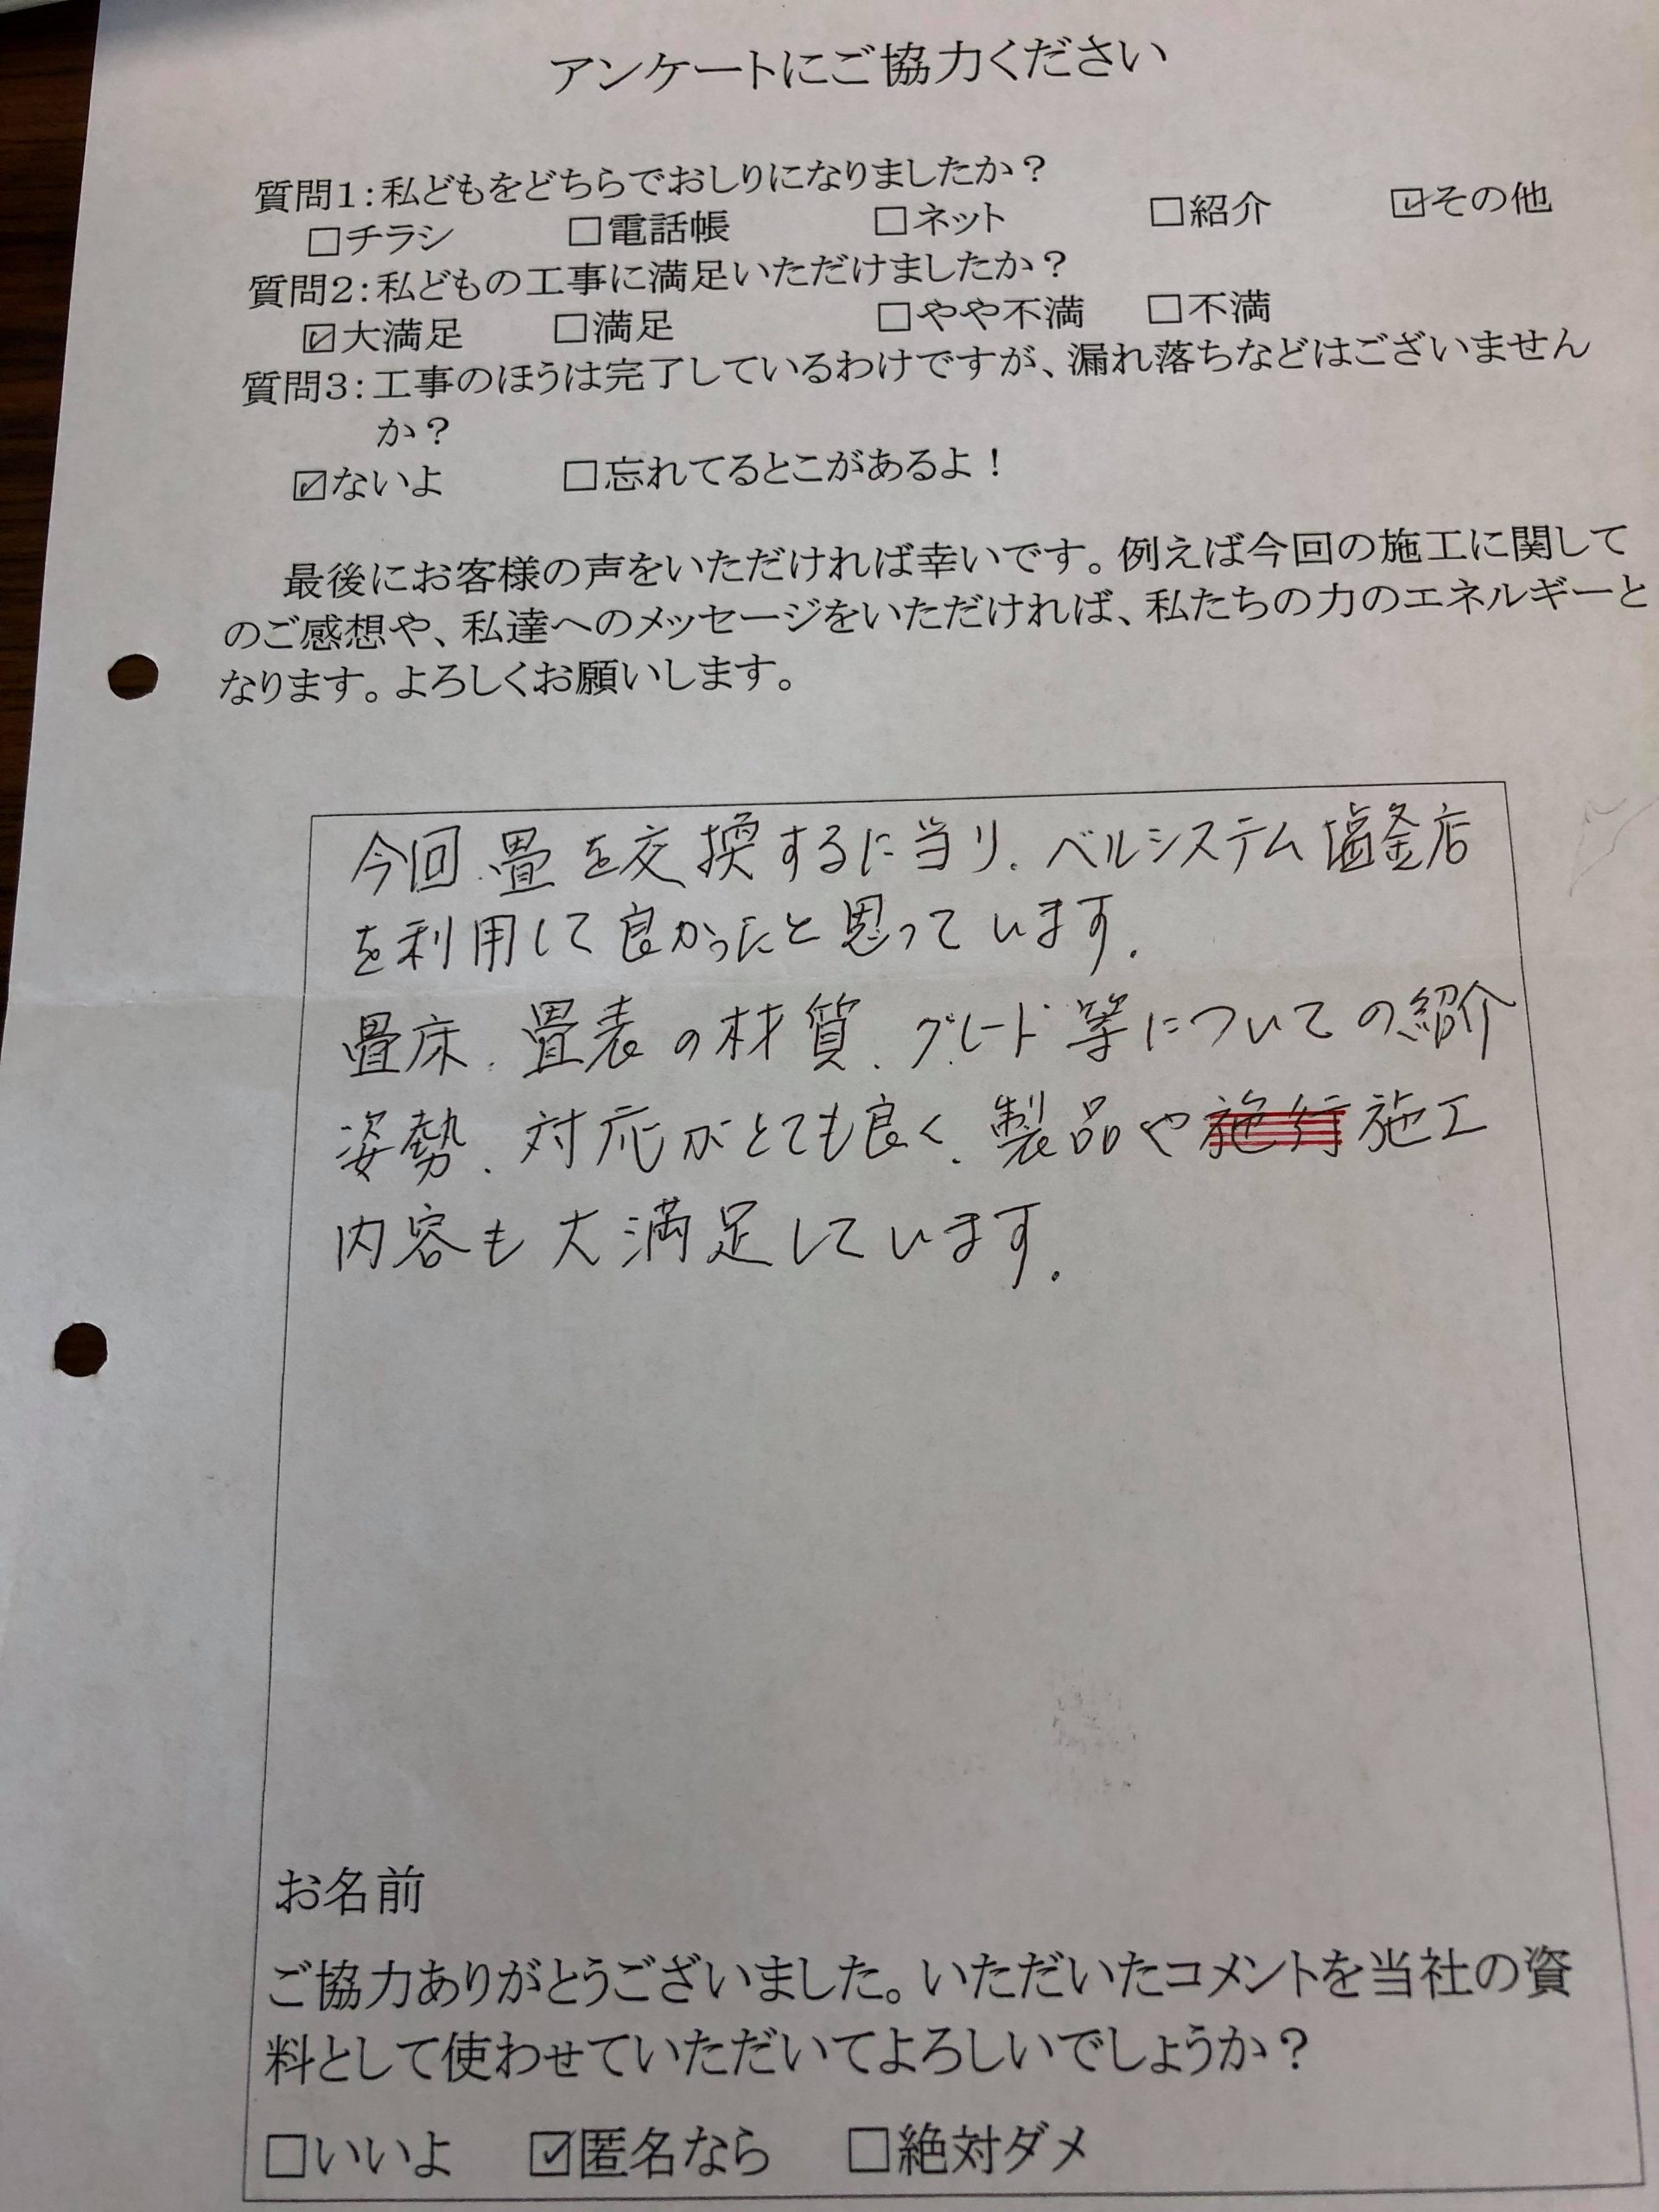 アンケートにご協力ください
質問1：私どもをどちらでおしりになりましたか？
□チラシ □電話帳 □ネット □紹介 ☑その他
質問2：私どもの工事に満足いただけましたか？
☑大満足 □満足 □やや不満 □不満
質問3：工事のほうは完了しているわけですが、漏れ落ちなどはございません
か？
☑ないよ □忘れてるとこがあるよ！
最後にお客様の声をいただければ幸いです。例えば今回の施工に関して
のご感想や、私達へのメッセージをいただければ、私たちの力のエネルギーと
なります。よろしくお願いします。
今回、畳を交換するに当り、ベルシステム塩釜店
を利用して良かったと思っています。
畳床、畳表の材質、グレード等についての紹介
姿勢、対応がとても良く、製品や施行施工
内容も大満足しています。
お名前
ご協力ありがとうございました。いただいたコメントを当社の資
料として使わせていただいてよろしいでしょうか？
□いいよ ☑匿名なら □絶対ダメ